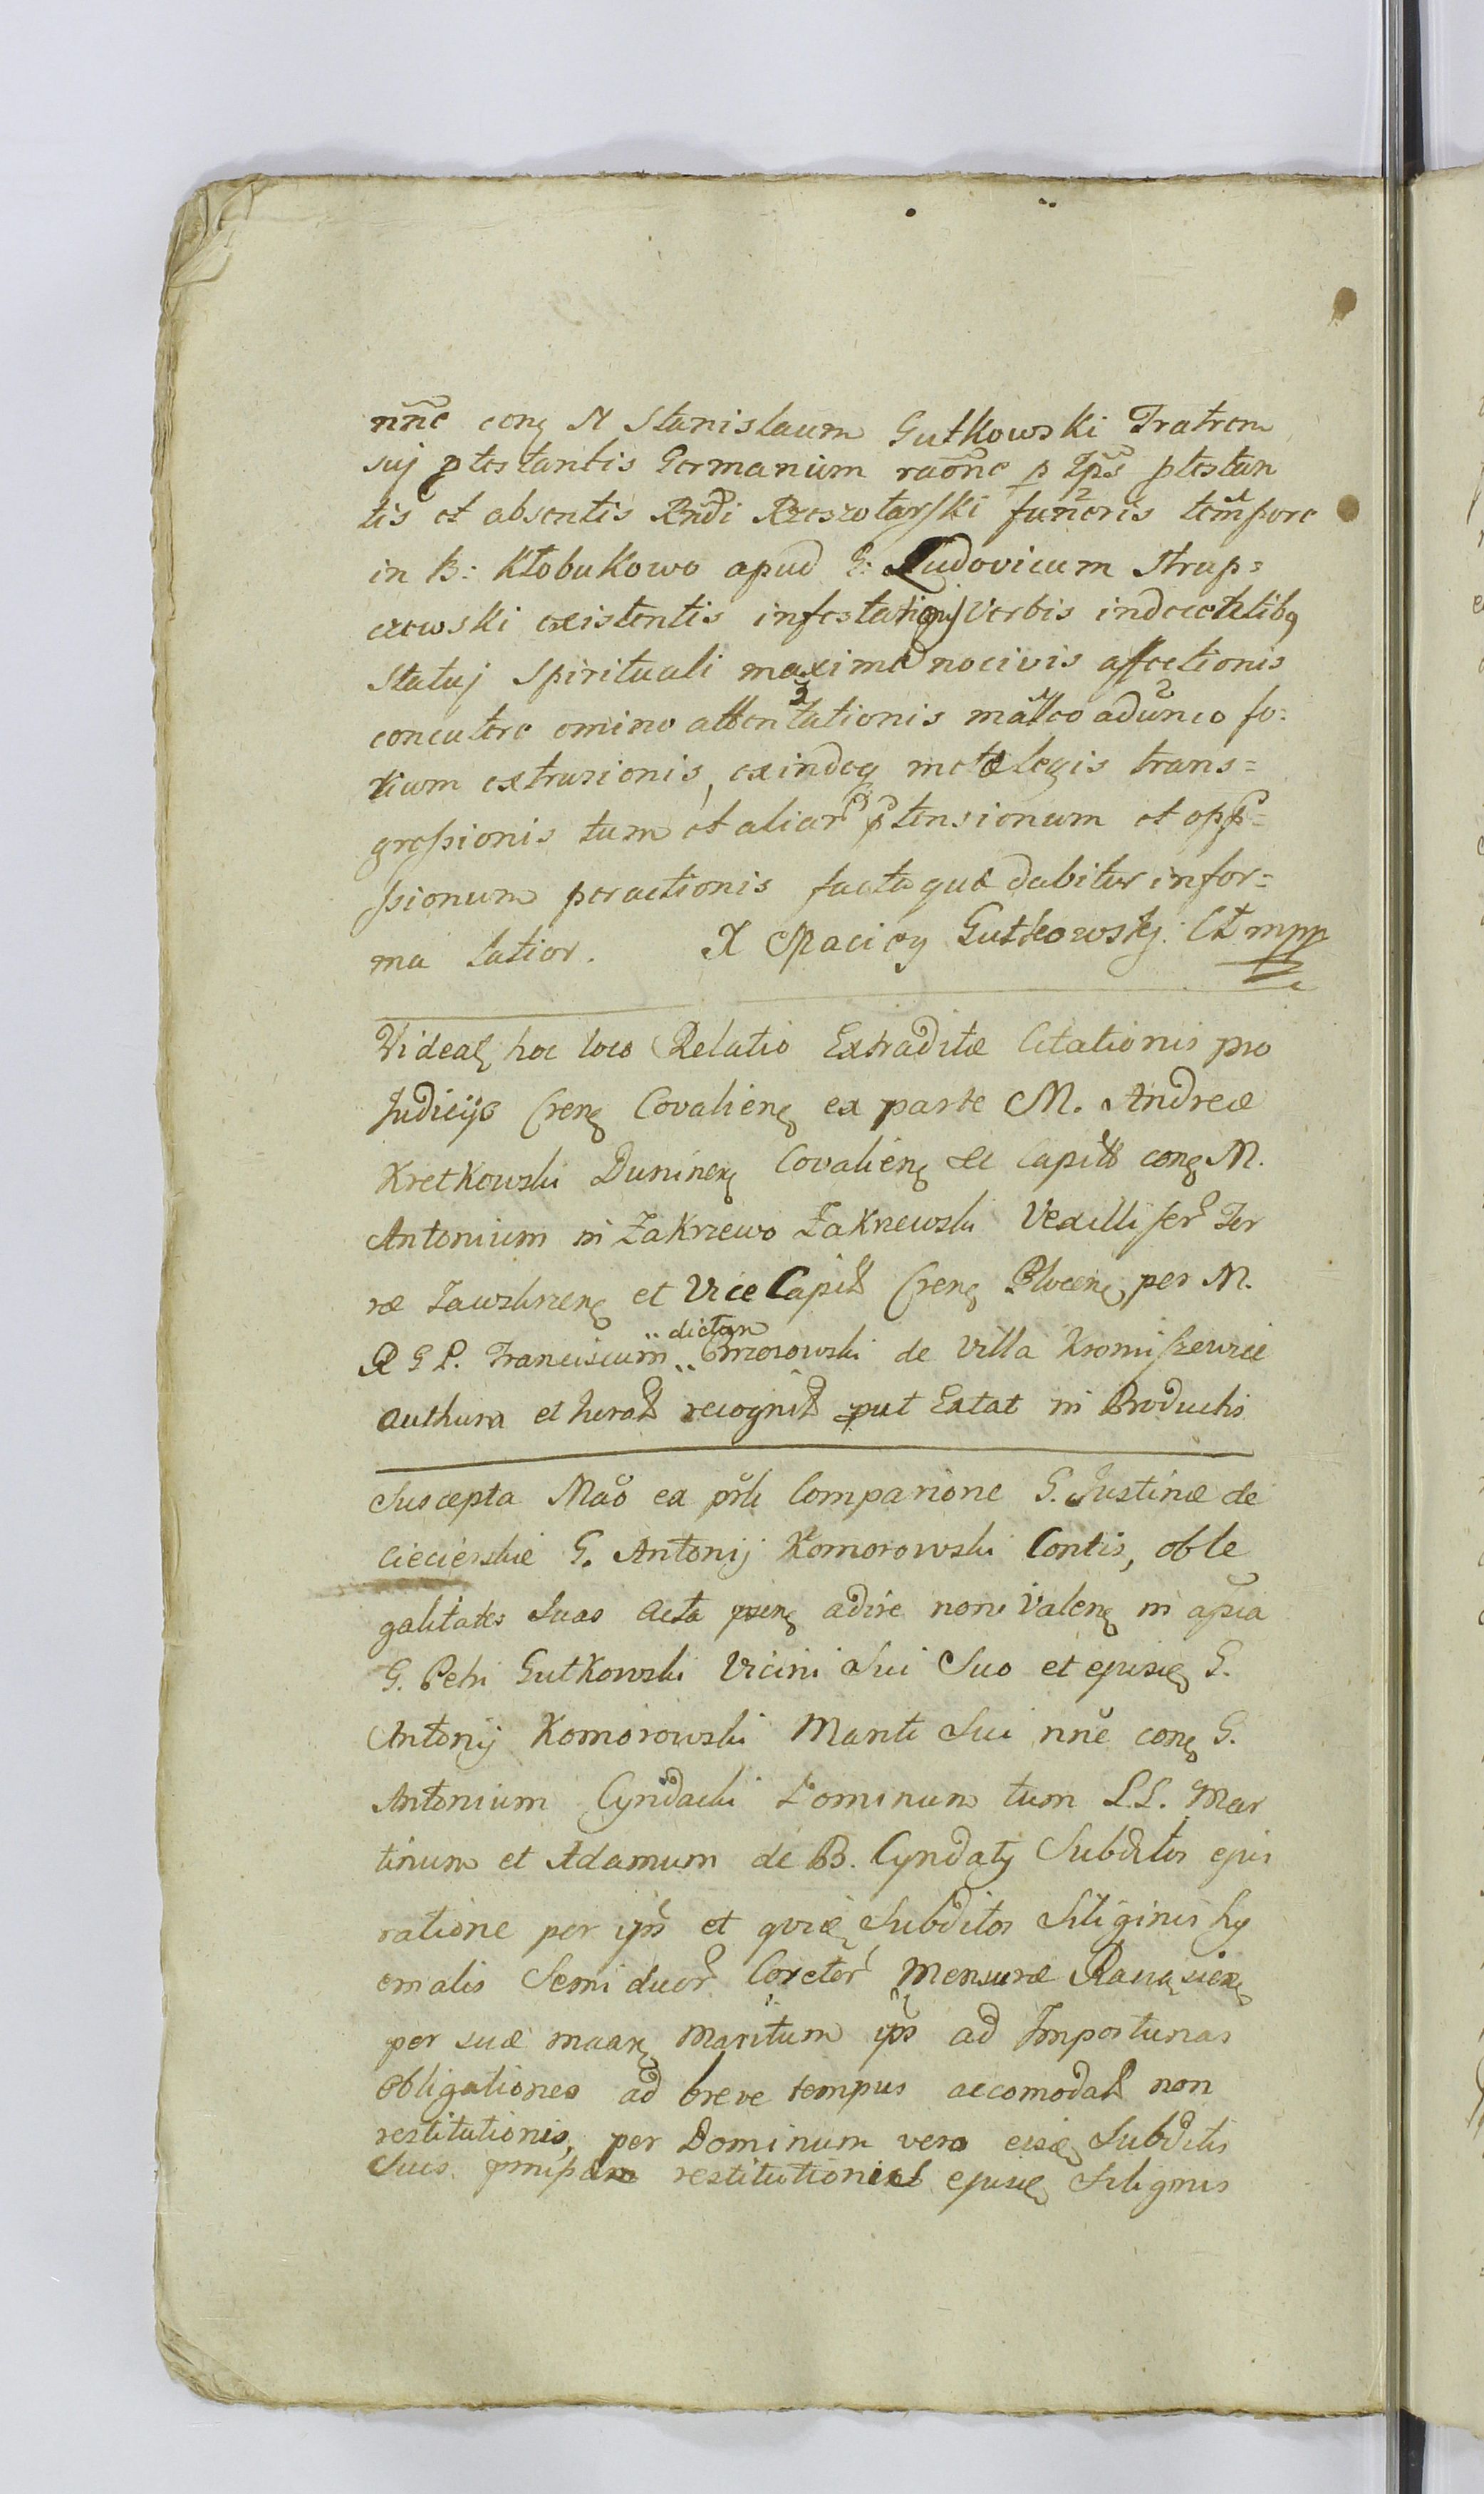 nñe conq M Stanislaum Gutkowski Fratrem
suj ptestantis Germanum raõne p Ips̃ ptestan
tis et absentis Rndi Rzeszotarski funeris tempore
in B: Kłobukowo apud G: Ludovicum Strup=
czewski existentis infestationis Verbis indecetilibq
statuj Spirituali maxime nocivis affectionis
concutere omino attentationis malleo adunco fo:
rium extrusionis, exindeq metæ legis trans=
gressionis tum et aliar ptensionum et opp=
ssionum peractionis facta quæ dabitur infor=
ma latior. X Maciey Gutkowsky. Ct mpp
Videat hoc loco Relatio Extraditæ Citationis pro
Judicijs Crenq Covalienq ex parte M. Andreæ
Kretkowski Duninenq Covalienq &c Capit conq M.
Antonium in Zakrzewo Zakrzewski Vexilliferr Ter
ræ Zawskrzenq et Vice Capit Crenq Plocenq per M.
R G P. Franciscum .. dictum Gmzorowski de Villa Kromiszewice
authum et herold recognit put Extat in Productis
Suscepta Mão ex prti Comparione G. Justinæ de
Ciecierskie G. Antonij Komorowski Contis, ob le
galitates suas acta prenq adire non Valenq in apsia
G. Petri Gutkowski Vicini Sui Suo et ejusdq G.
Antonij Komorowski Mariti Sui nñe conq G.
Antonium Cyndacki Dominum tum L.L. Mar
tinum et Adamum de B. Cyndaty Subditos ejus
ratione per ips et quidq Subditos Siliginis hy
emalis Semi duor Coretor Mensuræ Ravasienq
per suæ maanq Maritum ips ad Importunas
Obligationes ad breve tempus accomodat non
restitutionis, per Dominum vero eisdq Subditis
Suis restitutionis ejusdq Siliginis